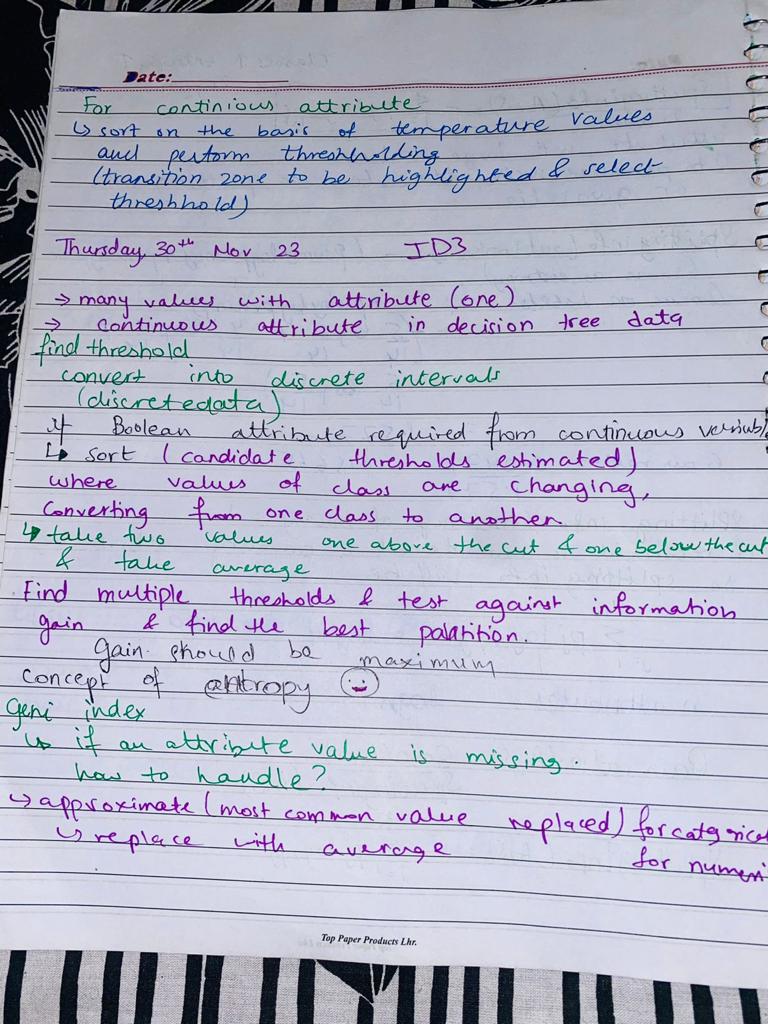 Date:
For continious attribute
↳ sort on the basis of temperature values
and perform threshholding
(transition zone to be highlighted & select
threshhold)
Thursday, 30th Nov 23 ID3
→ many values with attribute (one)
→ continuous attribute in decision tree data
find threshold
convert into discrete intervals
(discretedata)
if Boolean attribute required from continuous variabl
↳ sort (candidate thresholds estimated)
where values of class are changing,
Converting from one class to another
↳ take two values one above the cut & one below the cut
& take average
Find multiple thresholds & test against information
gain & find the best palatition.
Gain should be maximum
concept of entropy
Geni index
↳ if an attribute value is missing.
how to handle?
↳ approximate (most common value replaced) for categorical
↳ replace with average for numeri
Top Paper Products Lhr.